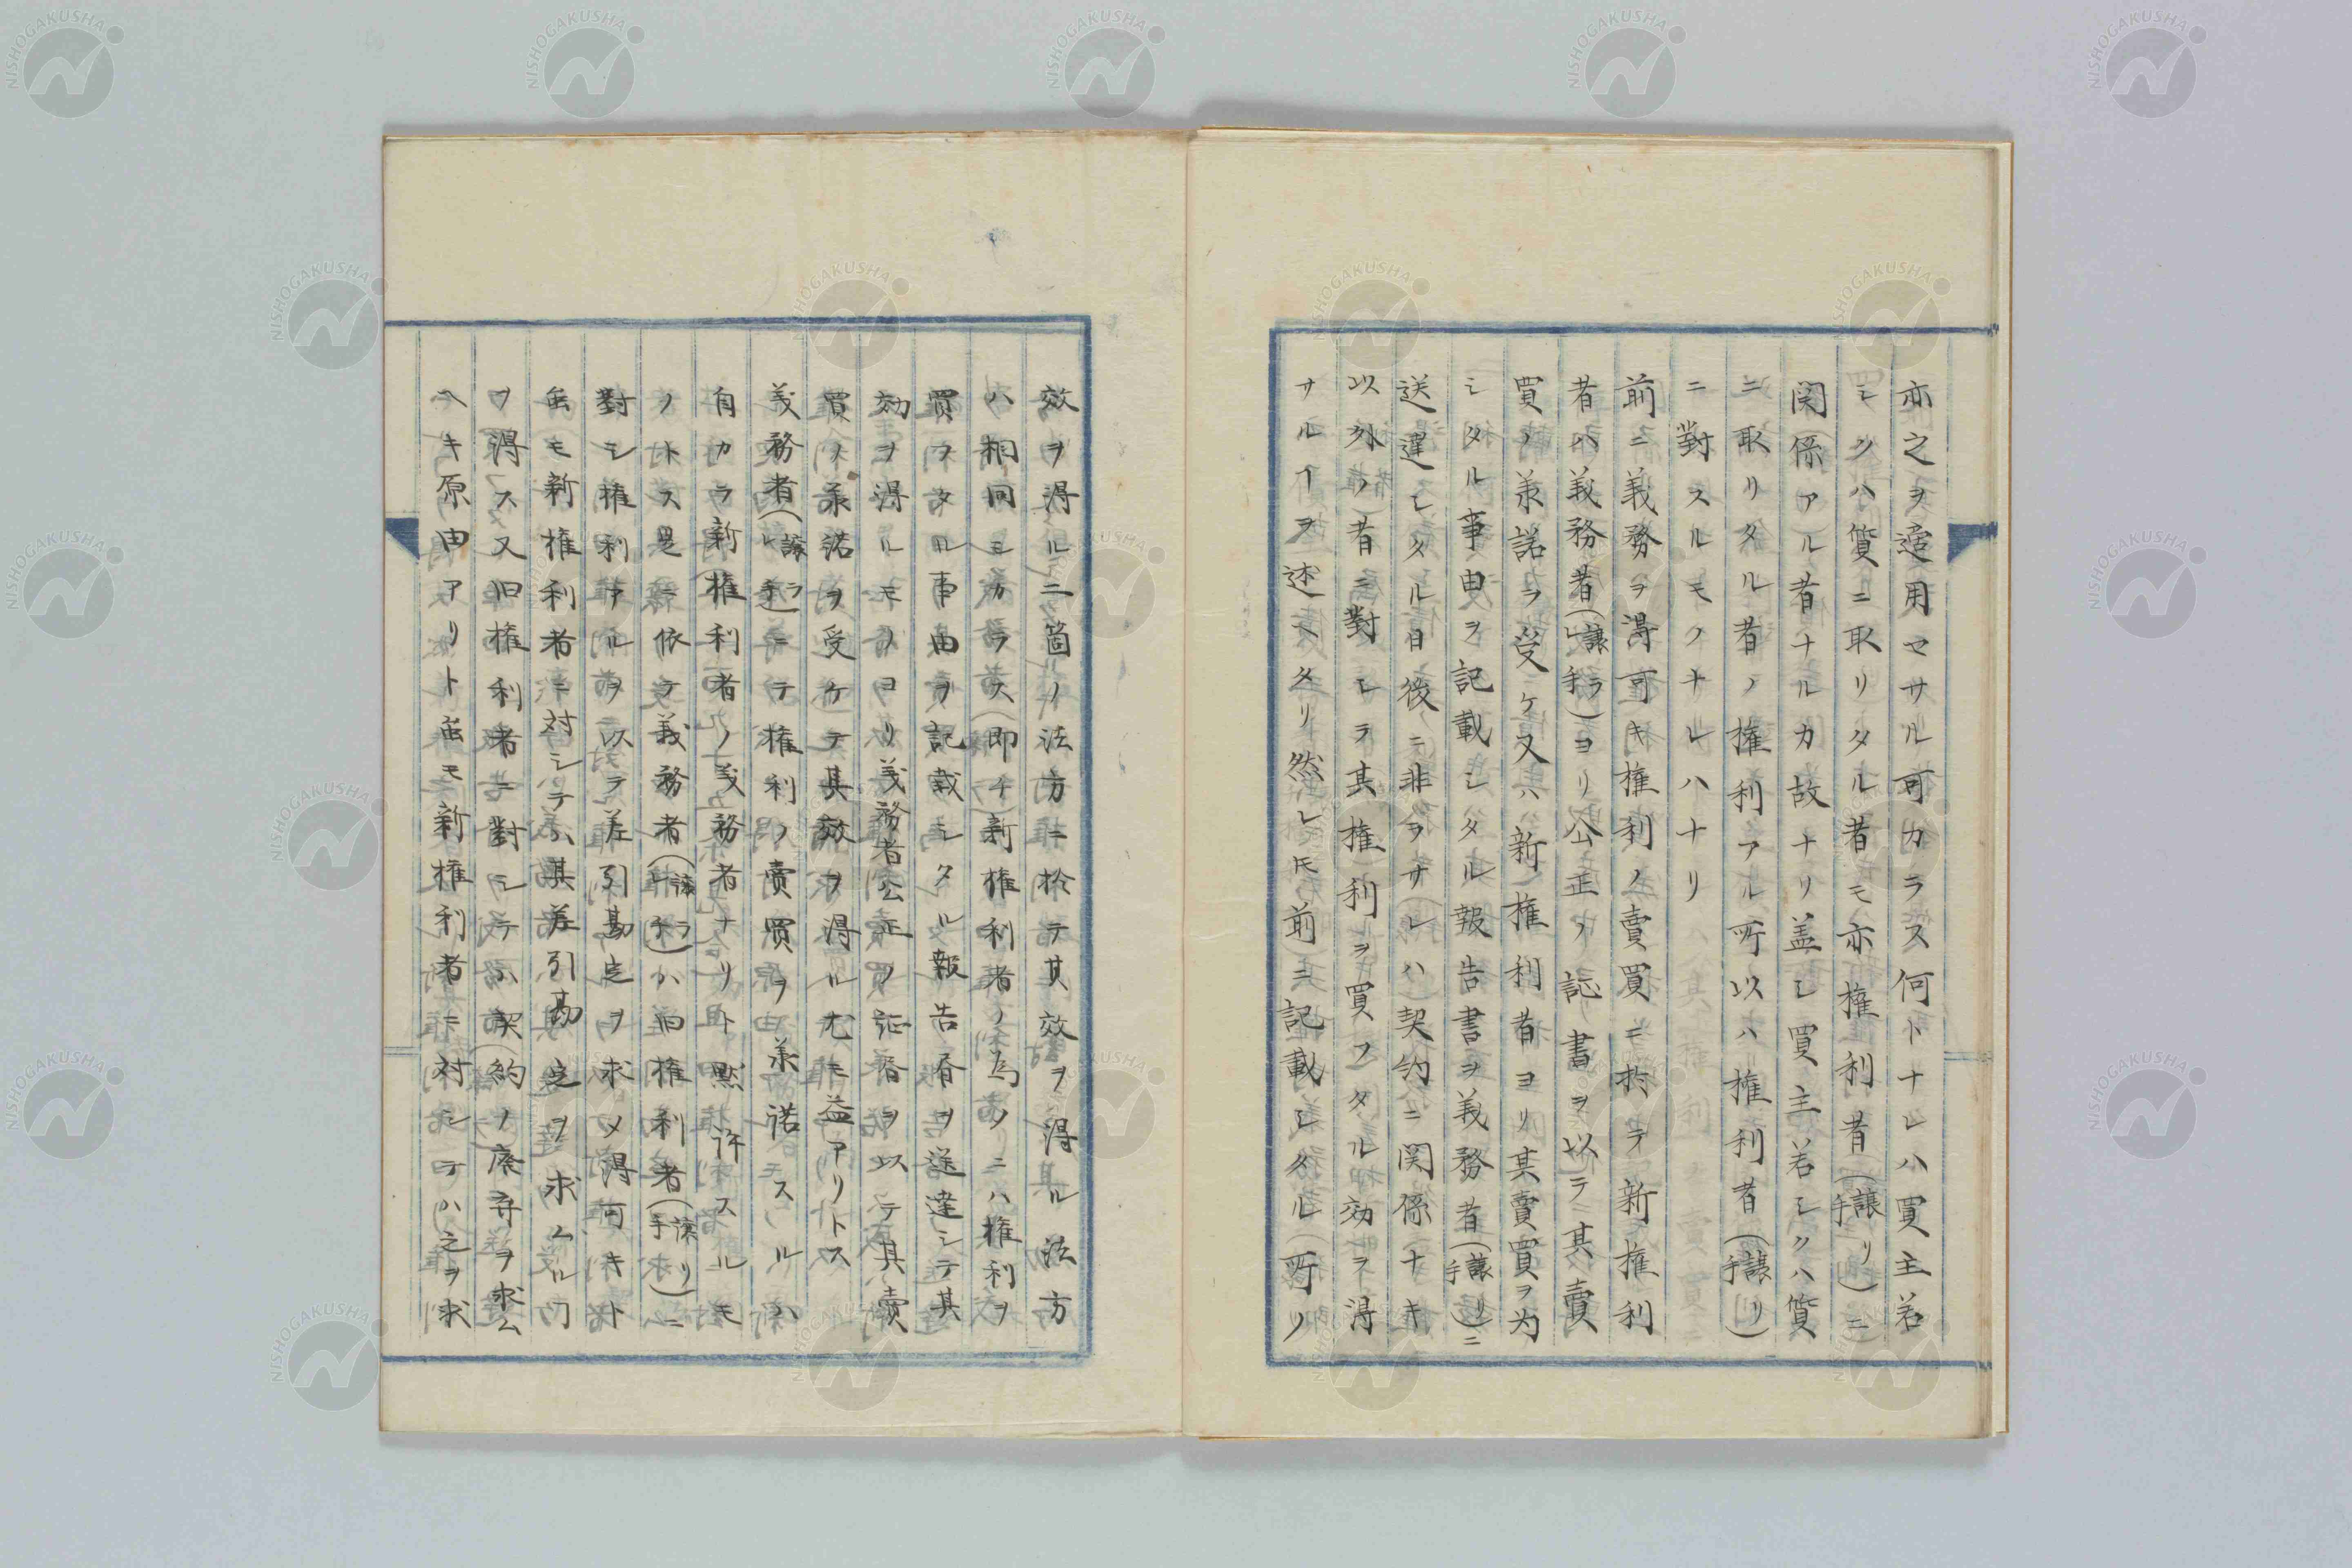 亦之ヲ適用セサル可カラス何トナレハ買主若
シクハ質ニ取リタル者モ亦権利者（譲リ手）ニ
関係アル者ナルカ故ナリ盖シ買主若シクハ質
ニ取リタル者ノ権利アル所以ハ権利者（譲リ手）
ニ對スルモノナレハナリ
前ニ義務ヲ得可キ権利ノ賣買ニ於テ新権利
者ハ義務者（譲ラレ手）ヨリ公正ノ証書ヲ以テ其賣
買ノ承諾ヲ受ケ又ハ新権利者ヨリ其賣買ヲ为
シタル事由ヲ記載シタル報告書ヲ義務者（譲リ手）ニ
送達シタル日後ニ非ヲサレハ契約ニ関係ナキ
以外ノ者ニ對シテ其権利ヲ買フタル効ヲ得
サルヿヲ述ヘタリ然レ𪜈前ニ記載シタル所ノ
效ヲ得ル二箇ノ法方ニ於テ其效ヲ得ル法方
ハ相同シカラス（即チ）新権利者ノ為メニハ権利ヲ
買フタル事由ヲ記載シタル報告書ヲ送達シテ其
効ヲ得ルモノヨリ義務者公正ノ証書ヲ以テ其賣
買ノ承諾ヲ受ケテ其效ヲ得ル尤モ益アリトス
義務者（譲ラレ手）ニテ権利ノ賣買ヲ承諾スルハ
自カラ新権利者ノ義務者ナリト黙許スルモ
ノトス是ニ依テ義務者（譲ラレ手）ハ旧権利者（譲リ手）ニ
對シ権利アルヲ以テ差引勘定ヲ求メ得可キト
雖モ新権利者ニ対シテハ其差引勘定ヲ求ムルヿ
ヲ得ス又旧権利者ニ對シテハ契約ノ廃弃ヲ求ム
ヘキ原由アリト雖モ新権利者ニ対シテハ之ヲ求
NISHOGAKUSHA